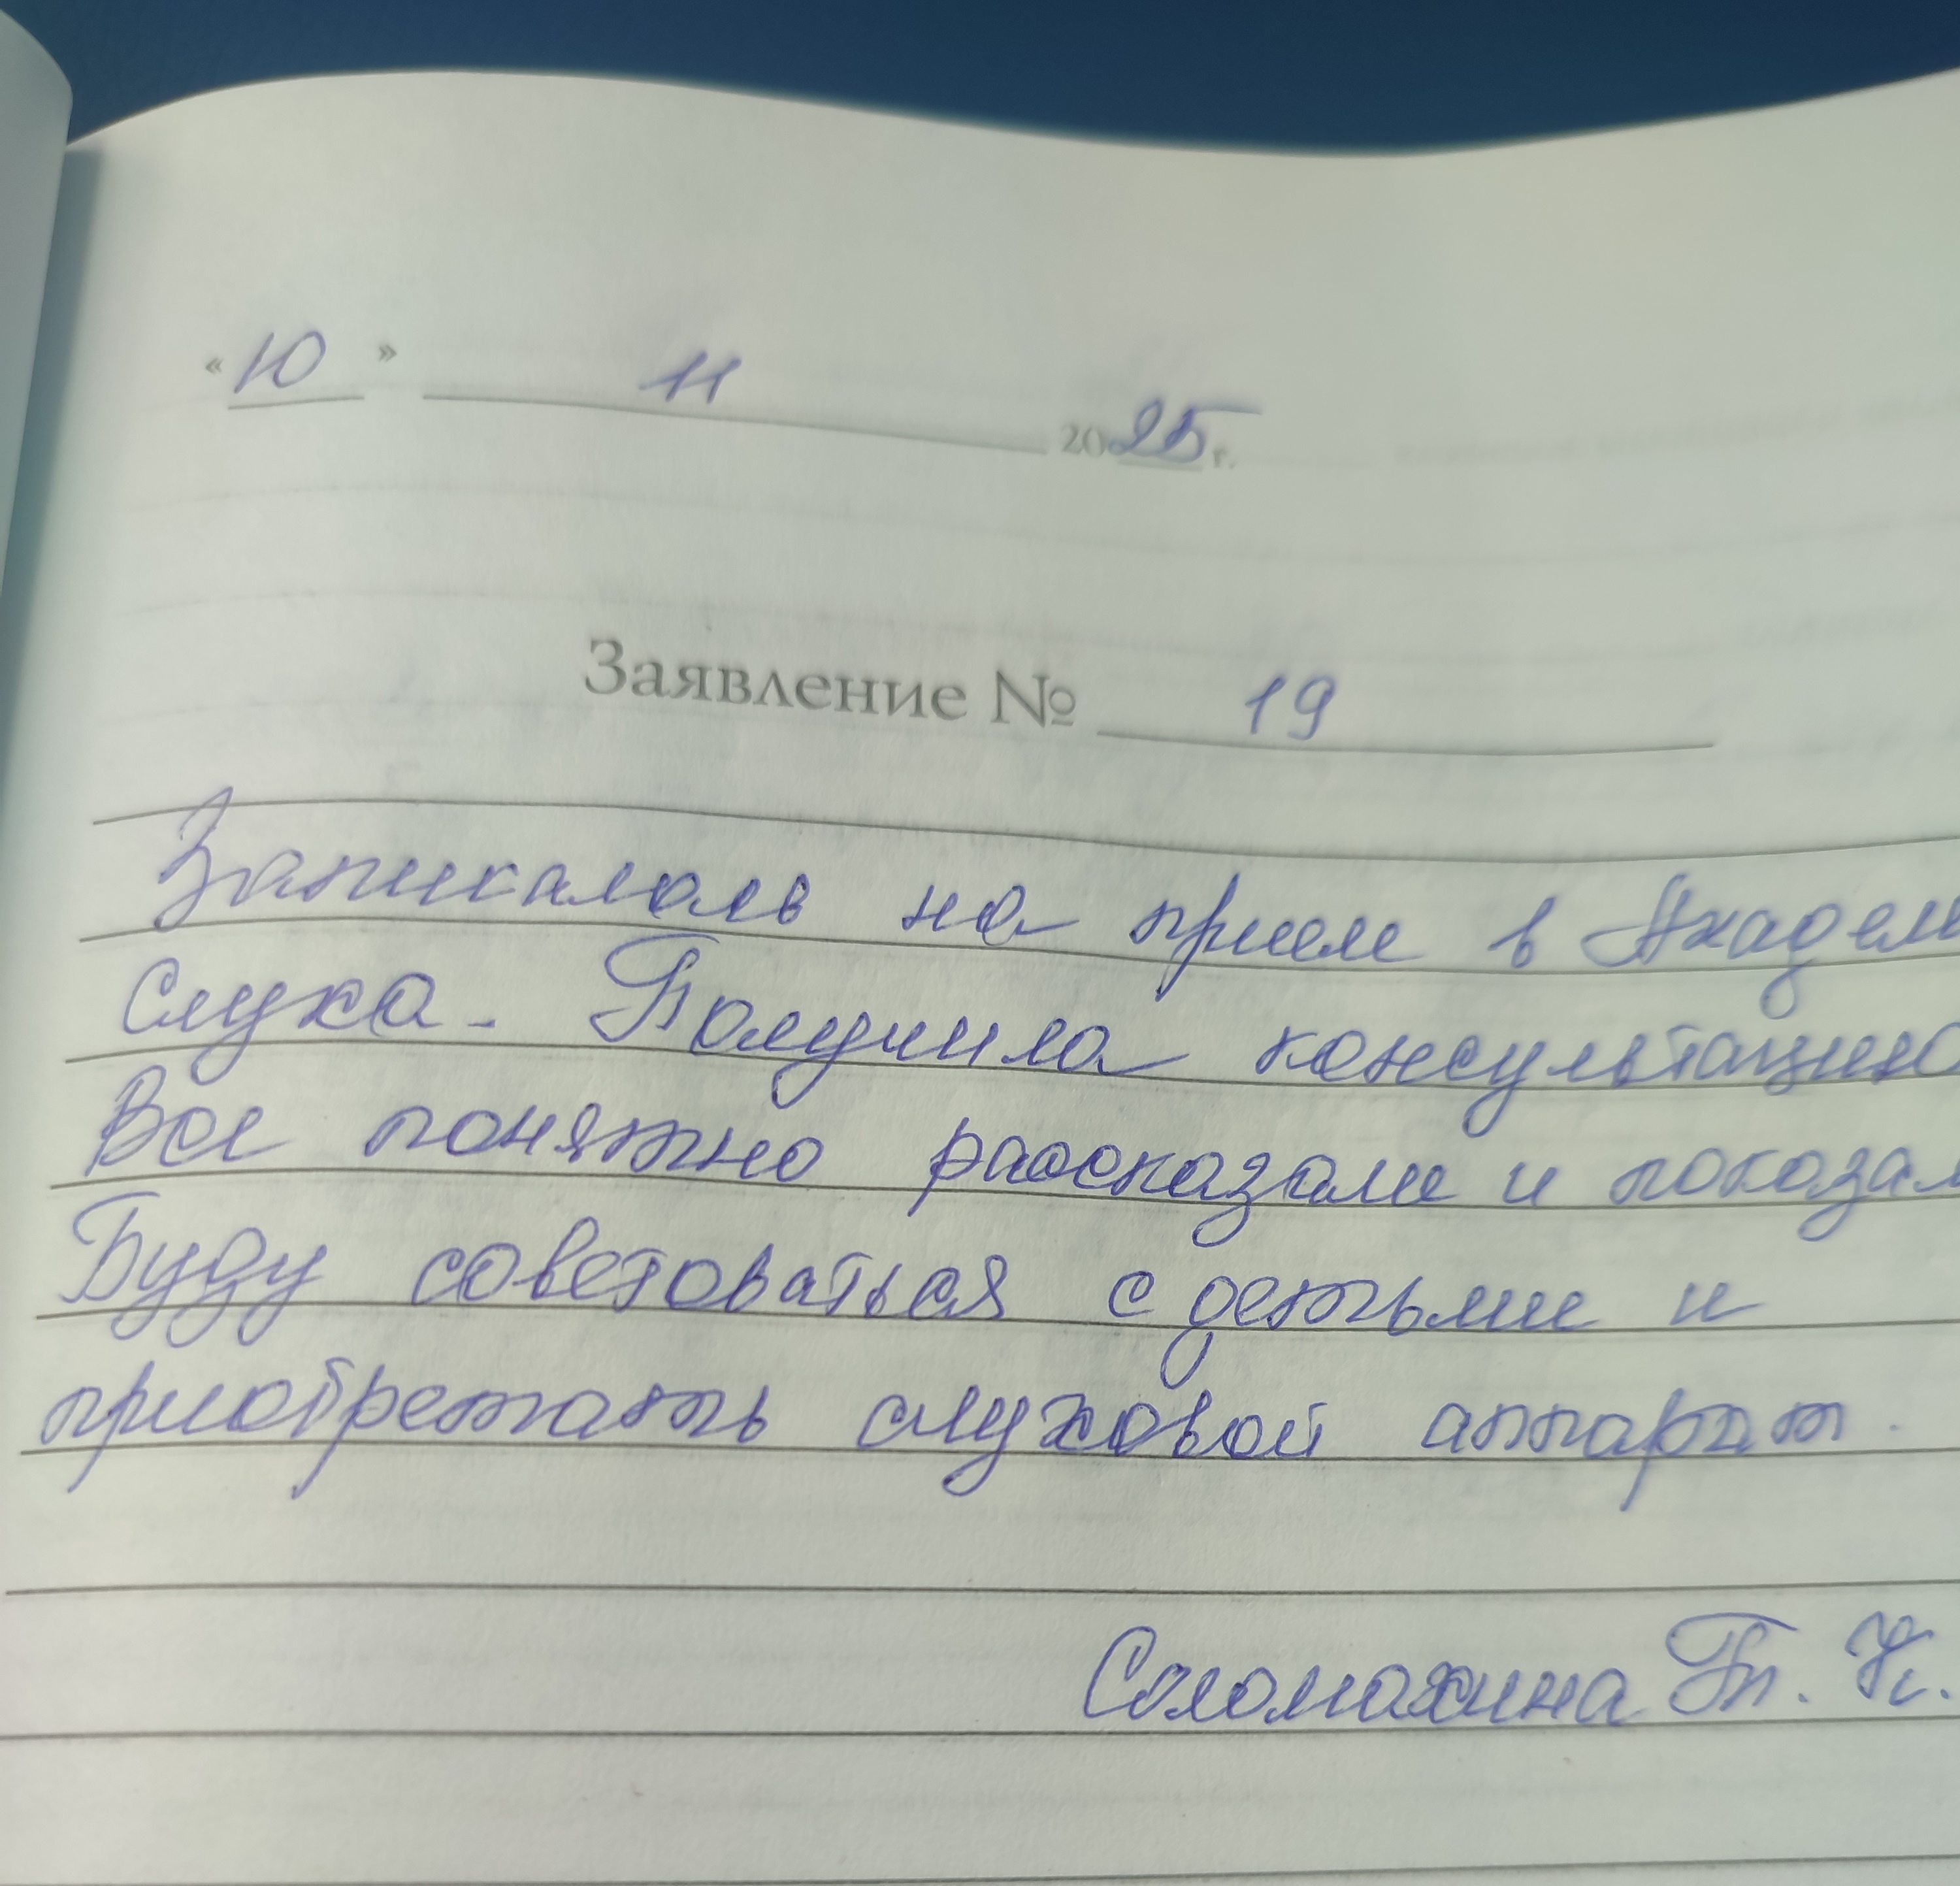 « 10 » 11 2025 г.
Заявление № 19
Записалась на прием в Академ
Слуха. Получила консультацию
Все понятно рассказали и показал
Буду советоваться с детьми и
приобретать слуховой аппарат.
Соломахина Т. К.